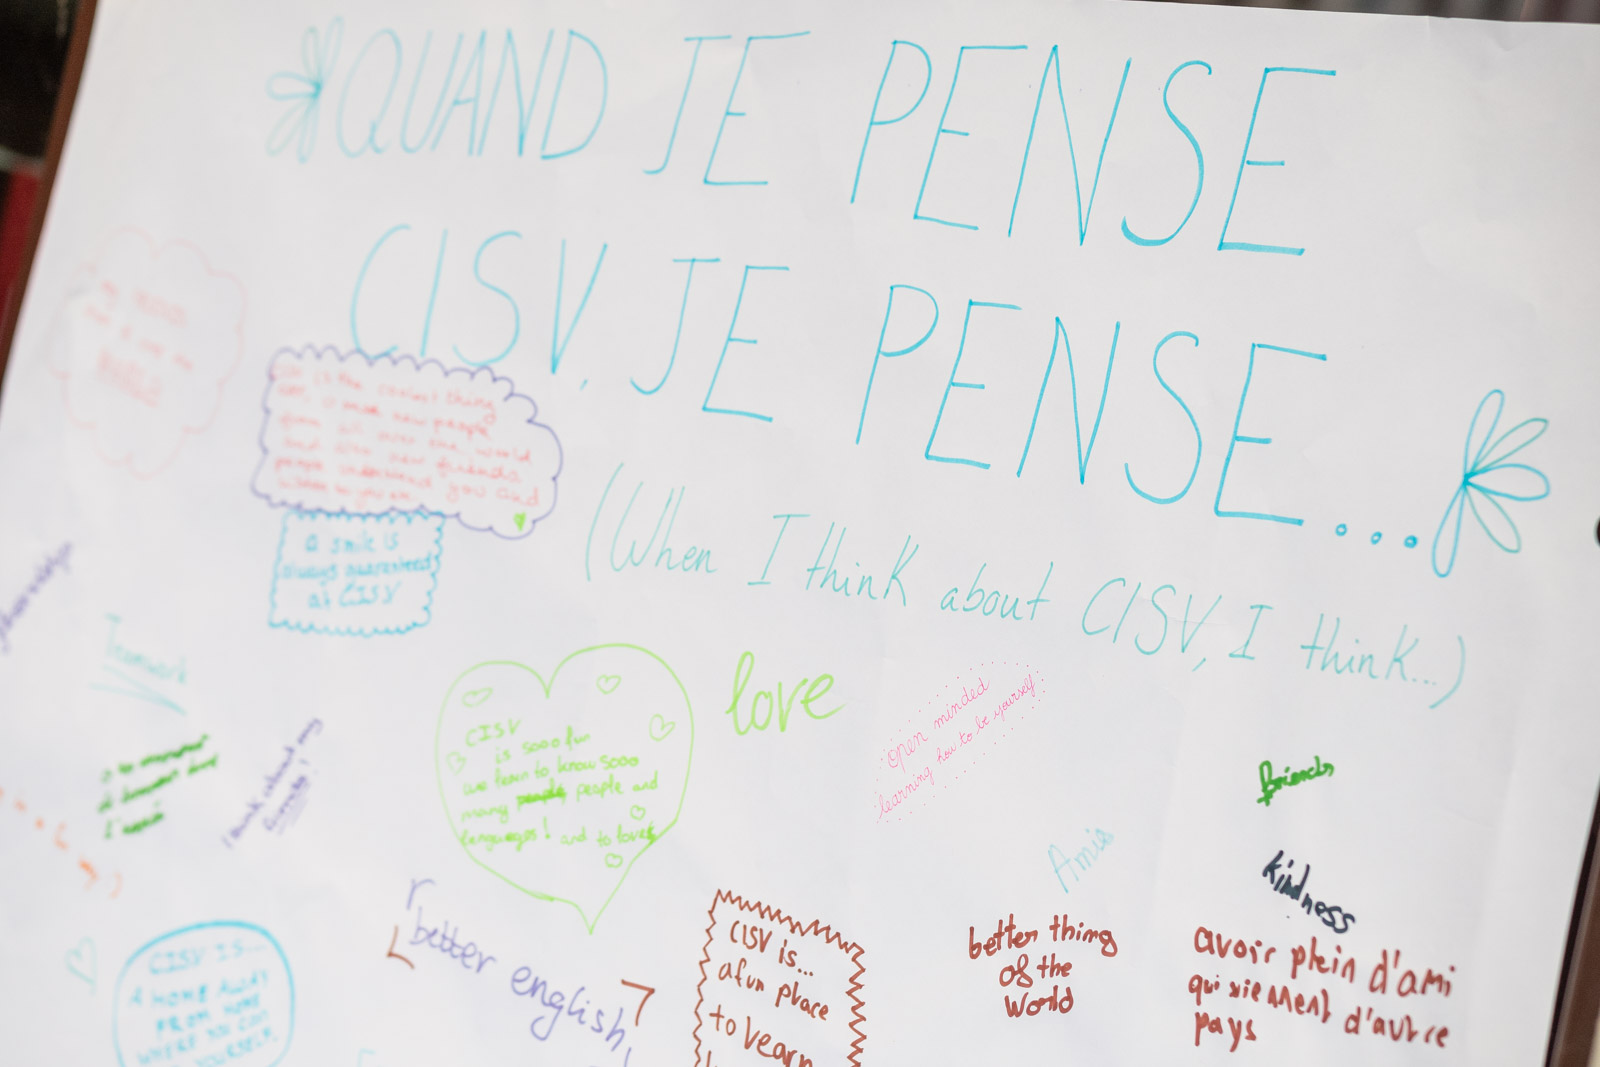 QUAND JE PENSE
CISV, JE PENSE...
(When I think about CISV, I think...)
CISV is the coolest thing
new people
from all over the world
and with new friends
people understand you and
a smile is
always guaranteed
at CISV
Teamwork
I think about my
friends!
CISV
is sooo fun
we learn to know sooo
many people people and
languages! and to love
love
open minded
learning how to be yourself
Friends
Amis
kindness
better english,
CISV is...
a fun place
to learn
better thing
of the
world
avoir plein d'ami
qui viennent d'autre
pays
CISV IS...
A HOME AWAY
FROM HOME
WHERE YOU CAN
YOURSELF.